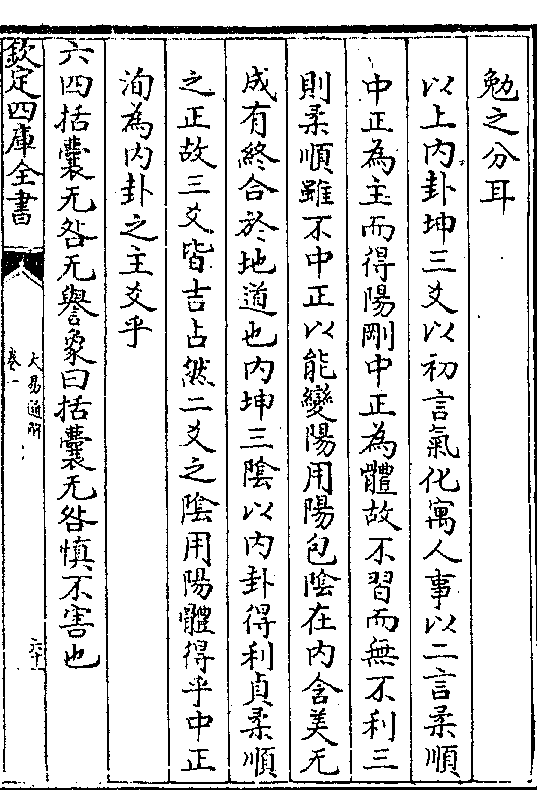 勉之分耳
以上内卦坤三爻以初言氣化寓人事以二言柔順
中正為主而得陽剛中正為體故不習而無不利三
則柔順雖不中正以能變陽用陽包陰在内含美无
成有終合於地道也内坤三陰以内卦得利貞柔順
之正故三爻皆吉占然二爻之陰用陽體得乎中正
洵為内卦之主爻乎
六四括囊无咎无譽象曰括囊无咎慎不害也
欽定四庫全書
大易通解
卷一
六十一